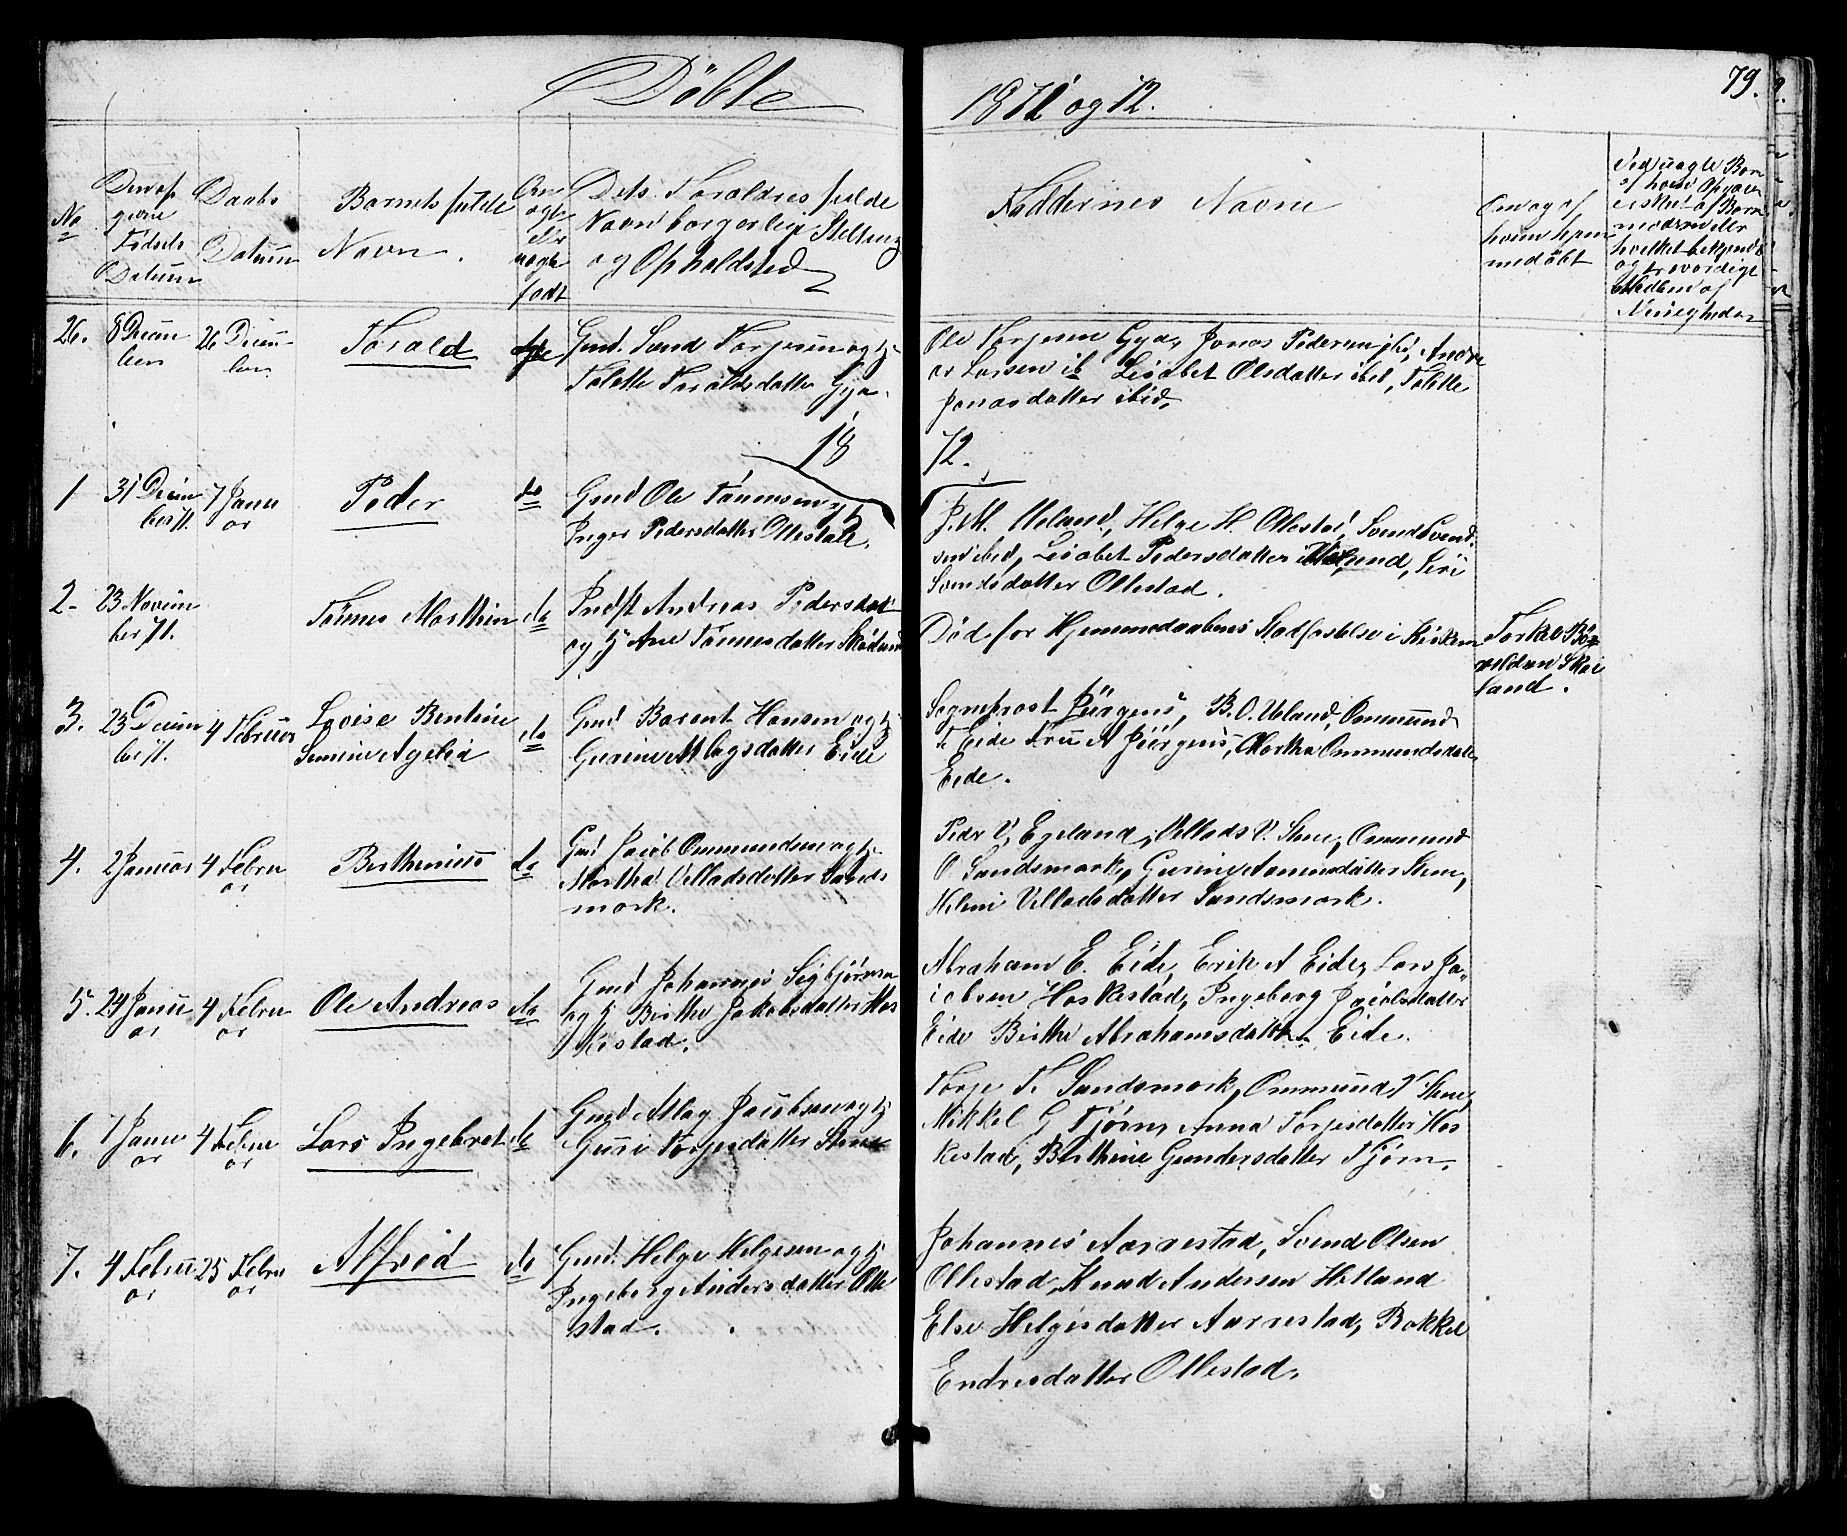 Döbte
1871 og 72.
79.
No
Dens af
givne
Födsels
Datum
Daabs
Datum
Barnets fulde
Navn.
Om
ægte
eller
uægte
født
Dets Forældres fulde
Navn borgerlige Stilling
og Opholdsted
Faddernes Navne
Om og af
hvem hjem
medøbt
26.
8 Decem
ber
26 Decem
ber
Torald
ægte
Gmd. Svend Torgersen og h.
Tolette Toraldsdatter Gya.
Ole Torgersen Gya, Jonas Pedersen ibd, Andre
as Larsen ib Lisabet Olsdatter ibid, Tolette
Jonasdatter ibid.
18
72.
1
31 Decem
ber 71.
7 Janu
ar
Peder
do
Gmd Ole Tönnesen og h
Inger Pedersdatter Ollestad.
P. M. Ueland, Helge H. Ollestad, Svend Svend
sen ibid, Lisabet Pedersdatter Ueland, Siri
Svendsdatter Ollestad.
2-
23 Novem
ber 71.
Tönnes Marthin
do
Indst Andreas Pedersen
og h Ane Tönnesdatter
Död før Hjemmedaabens Stadfæstelse i Kirken
Torkel
Skei
land.
3.
23 Decem
ber 71.
4 Februar
Lovise Bentine
Semine Agelia
do
Gmd Barent Hansen og h
Gurine Atlagsdatter Eide
Sogneprest Jürgens, B. O. Ueland, Ommund
T. Eide Fru A Jürgens, Martha Ommundsdatter
Eide.
4.
2 Januar
4 Febru
ar
Berthinius
do
Gmd Jacob Ommundsen og h.
Martha Villadsdatter Sands
mark.
Peder V. Egeland, Villads V. Stene, Ommund
O. Sandsmark, Gurine Aamundsdatter Stene,
Helene Villadsdatter Sandsmark.
5.
24 Janu
ar
4 Febru
ar
Ole Andreas
do
Gmd Johannes Sigbjörnsen
og h Birthe Jakobsdatter Hos
kestad.
Abraham E. Eide, Erik A Eide, Lars Ja-
cobsen Hoskestad, Ingeborg Jacobsdatter
Eide Birthe Abrahamsdatter Eide.
6.
7 Janu
ar
4 Febru
ar
Lars Ingebret
do
Gmd Atlag Jacobsen og h
Guri Torjersdatter Stene
Torge T. Sandsmark, Ommund V Stene,
Mikkel G Tjørn, Anna Torjersdatter Hos
kestad, Berthine Gundersdatter Tjörn.
7.
4 Febru
ar
25 Febru
ar
Alfred
do
Gmd. Helge Helgesen og h
Ingeborg Andersdatter Olle
stad.
Johannes Aarrestad, Svend Olsen
Ollestad, Knud Andersen Helland
Else Helgesdatter Aarrestad, Rakkel
Endresdatter Ollestad.